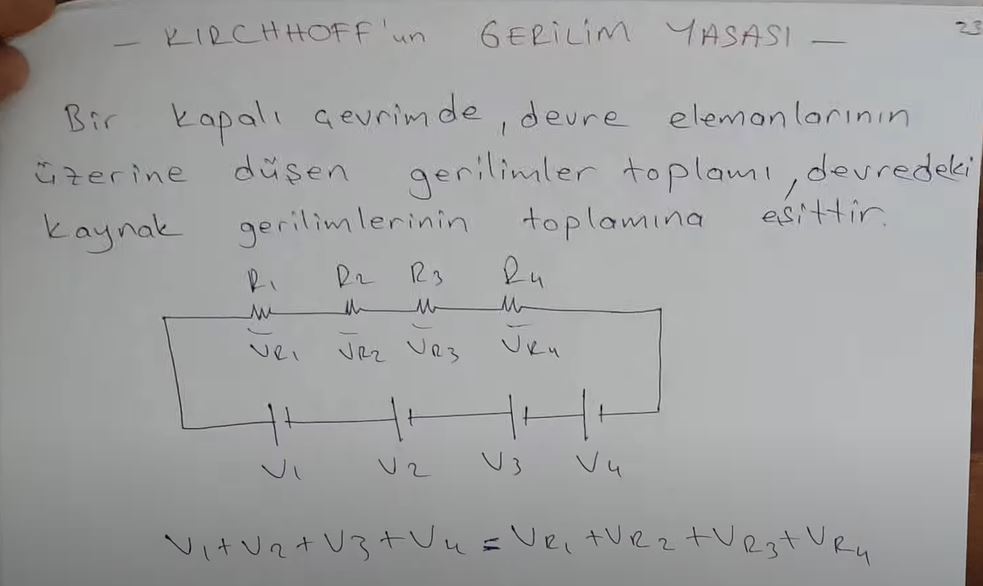 - KIRCHHOFF'un GERİLİM YASASI -
23
Bir kapalı çevrimde, devre elemanlarının
üzerine düşen gerilimler toplamı, devredeki
kaynak gerilimlerinin toplamına eşittir.
R1 R2 R3 R4
VR1 VR2 VR3 VR4
V1 V2 V3 V4
V1+V2+V3+V4 = VR1+VR2+VR3+VR4